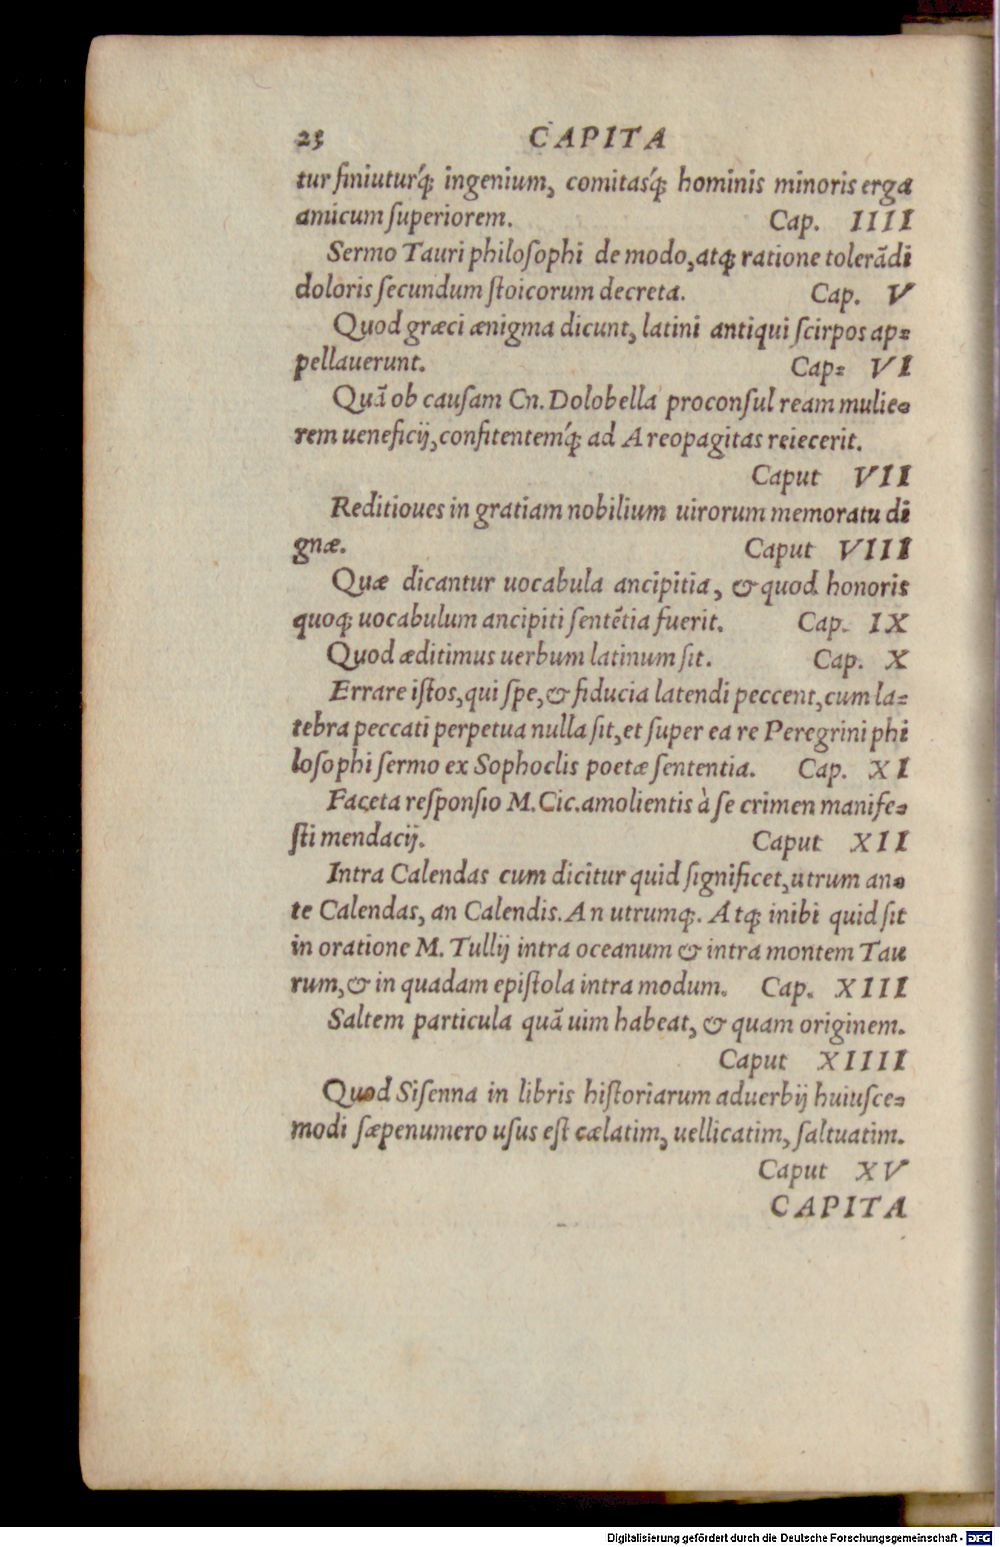 23 CAPITA
tur finiuturq́; ingenium, comitasq́; hominis minoris erga
amicum ſuperiorem. Cap. IIII
Sermo Tauri philoſophi de modo, atq; ratione tolerādi
doloris ſecundum ſtoicorum decreta. Cap. V
Quod græci ænigma dicunt, latini antiqui ſcirpos ap=
pellauerunt. Cap= VI
Quā ob cauſam Cn. Dolobella proconſul ream mulie=
rem ueneficij, confitentemq́; ad Areopagitas reiecerit.
Caput VII
Reditioues in gratiam nobilium uirorum memoratu di
gnæ. Caput VIII
Quæ dicantur uocabula ancipitia, & quod honoris
quoq; uocabulum ancipiti ſentētia fuerit. Cap. IX
Quod æditimus uerbum latinum ſit. Cap. X
Errare iſtos, qui ſpe, & fiducia latendi peccent, cum la=
tebra peccati perpetua nulla ſit, et ſuper ea re Peregrini phi
loſophi ſermo ex Sophoclis poetæ ſententia. Cap. XI
Faceta reſponſio M. Cic. amolientis à ſe crimen manife=
ſti mendacij. Caput XII
Intra Calendas cum dicitur quid ſignificet, utrum an=
te Calendas, an Calendis. An utrumq;. Atq; inibi quid ſit
in oratione M. Tullij intra oceanum & intra montem Tau
rum, & in quadam epiſtola intra modum. Cap. XIII
Saltem particula quā uim habeat, & quam originem.
Caput XIIII
Quod Siſenna in libris hiſtoriarum aduerbij huiuſce=
modi ſæpenumero uſus eſt cælatim, uellicatim, ſaltuatim.
Caput XV
CAPITA
Digitalisierung gefördert durch die Deutsche Forschungsgemeinschaft - DFG